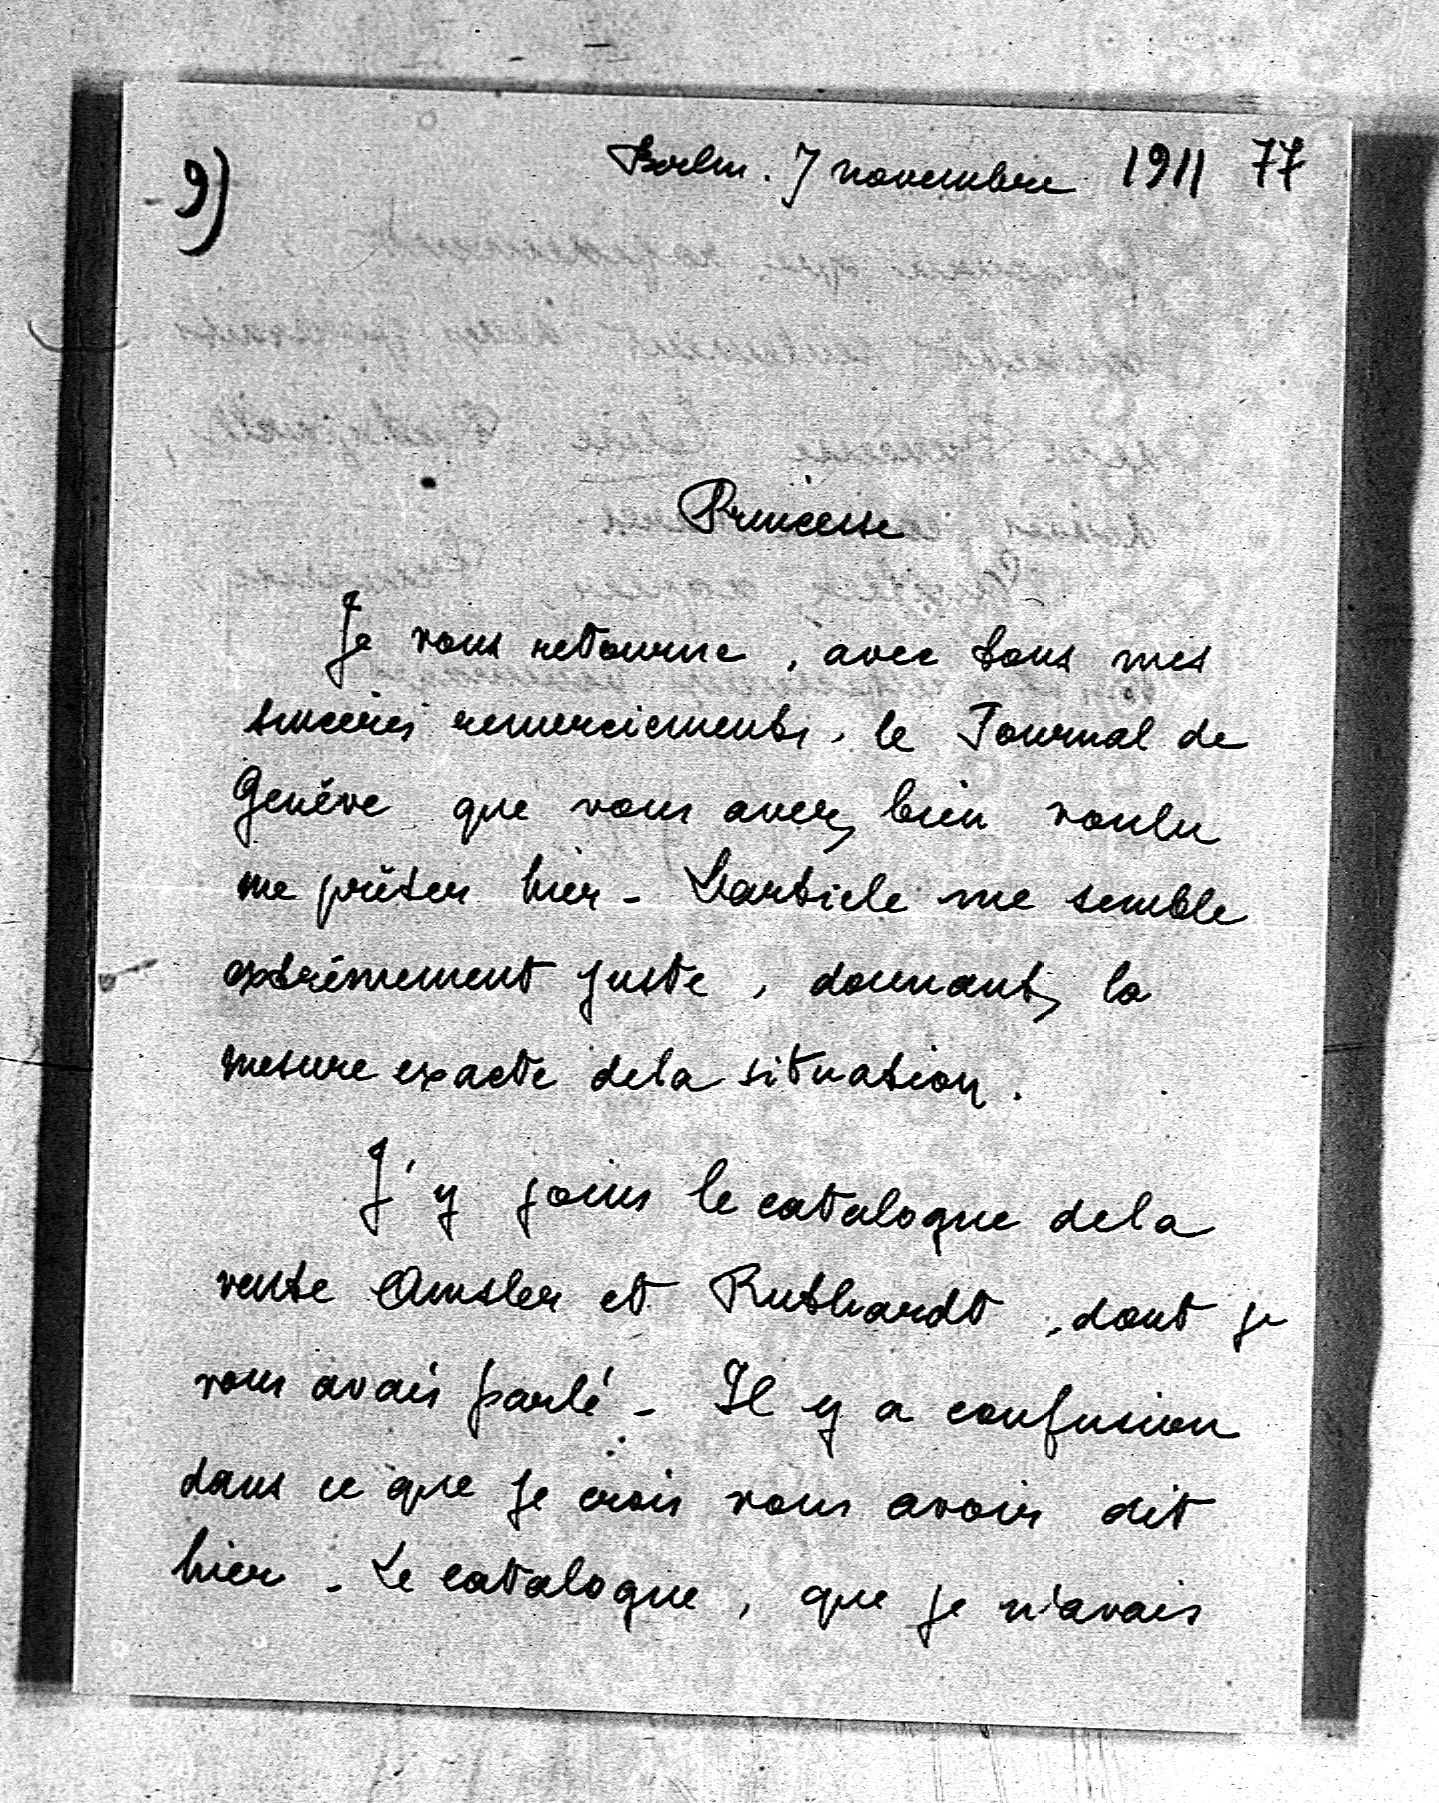 9)
Berlin. 7 novembre 1911 77
Princesse
Je vous retourne, avec tous mes
sincères remerciements, le Journal de
Genève que vous avez bien voulu
me prêter hier - L'article me semble
extrêmement juste, donnant la
mesure exacte de la situation.
J'y joins le catalogue de la
vente Amsler et Ruthardt, dont je
vous avais parlé - Il y a confusion
dans ce que je crois vous avoir dit
hier - Le catalogue, que je n'avais